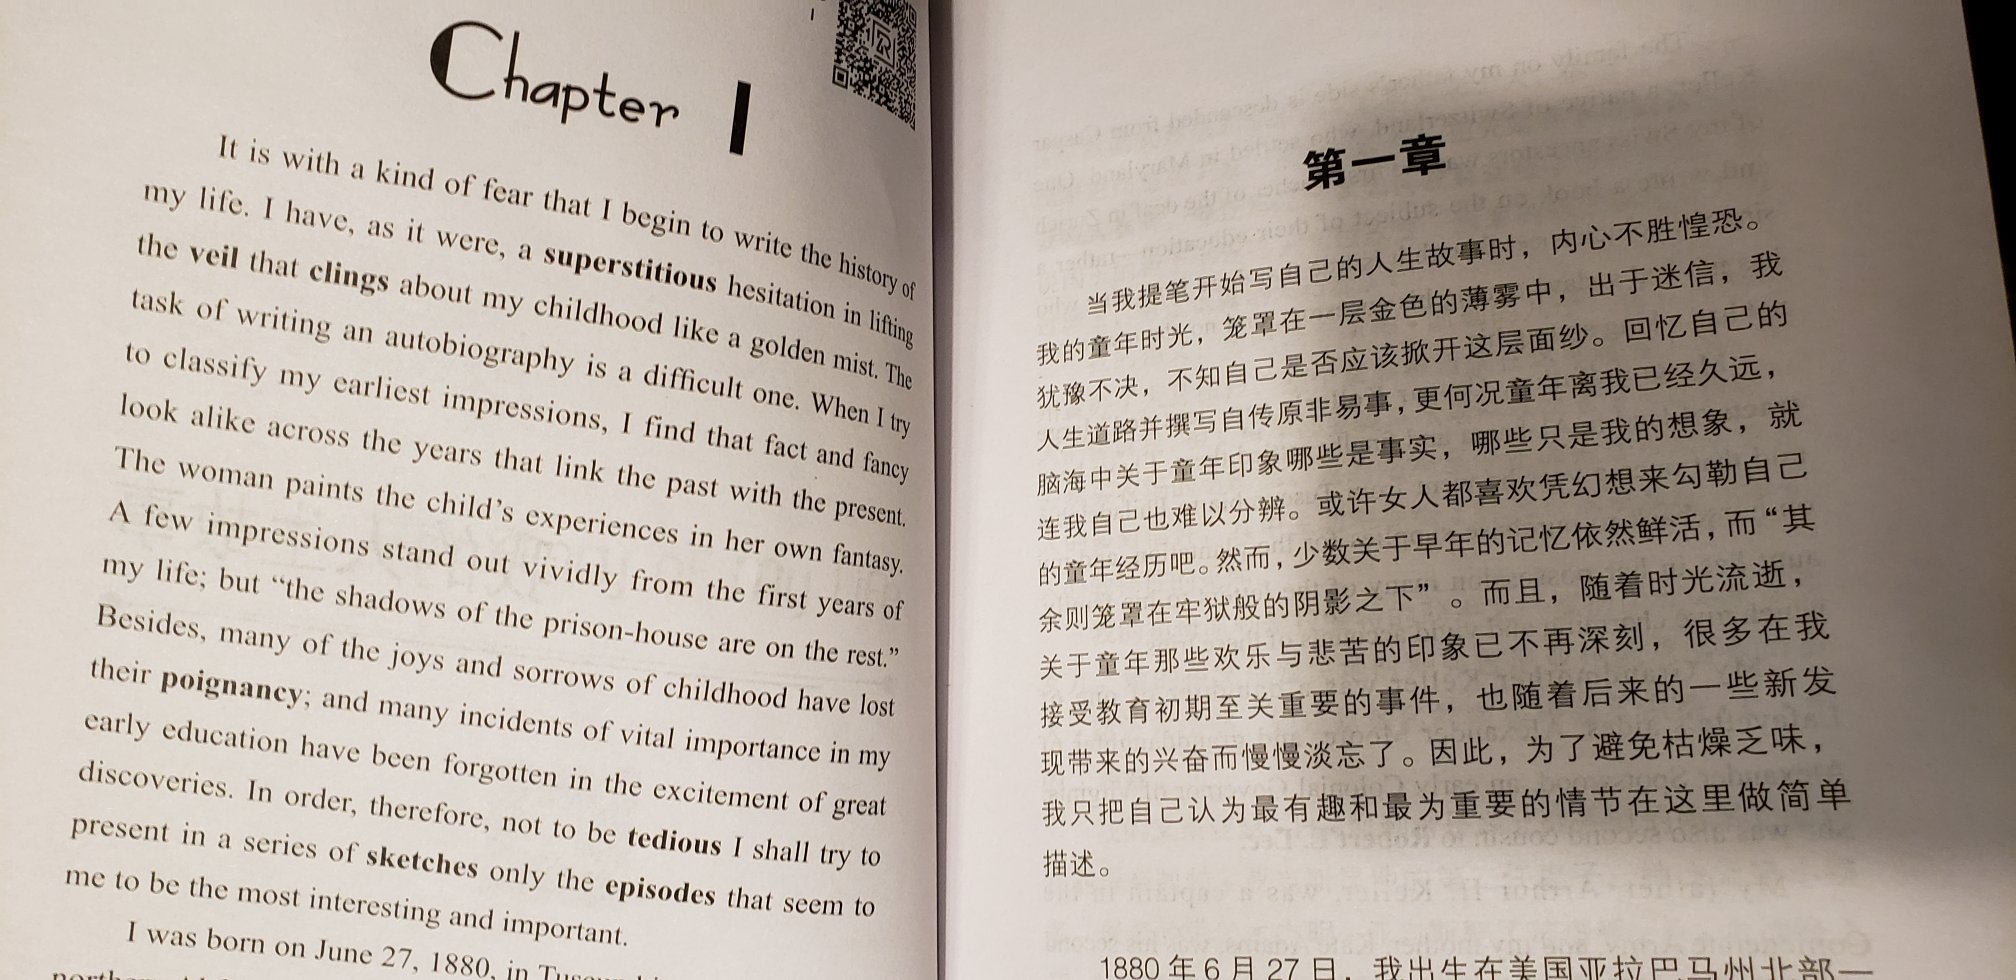 Chapter 1
It is with a kind of fear that I begin to write the history of
my life. I have, as it were, a superstitious hesitation in lifting
the veil that clings about my childhood like a golden mist. The
task of writing an autobiography is a difficult one. When I try
to classify my earliest impressions, I find that fact and fancy
look alike across the years that link the past with the present.
The woman paints the child's experiences in her own fantasy.
A few impressions stand out vividly from the first years of
my life; but “the shadows of the prison-house are on the rest.”
Besides, many of the joys and sorrows of childhood have lost
their poignancy; and many incidents of vital importance in my
early education have been forgotten in the excitement of great
discoveries. In order, therefore, not to be tedious I shall try to
present in a series of sketches only the episodes that seem to
me to be the most interesting and important.
I was born on June 27, 1880, in
第一章
当我提笔开始写自己的人生故事时，内心不胜惶恐。
我的童年时光，笼罩在一层金色的薄雾中，出于迷信，我
犹豫不决，不知自己是否应该掀开这层面纱。回忆自己的
人生道路并撰写自传原非易事，更何况童年离我已经久远，
脑海中关于童年印象哪些是事实，哪些只是我的想象，就
连我自己也难以分辨。或许女人都喜欢凭幻想来勾勒自己
的童年经历吧。然而，少数关于早年的记忆依然鲜活，而“其
余则笼罩在牢狱般的阴影之下”。而且，随着时光流逝，
关于童年那些欢乐与悲苦的印象已不再深刻，很多在我
接受教育初期至关重要的事件，也随着后来的一些新发
现带来的兴奋而慢慢淡忘了。因此，为了避免枯燥乏味，
我只把自己认为最有趣和最为重要的情节在这里做简单
描述。
1880年6月27日，我出生在美国亚拉巴马州北部一